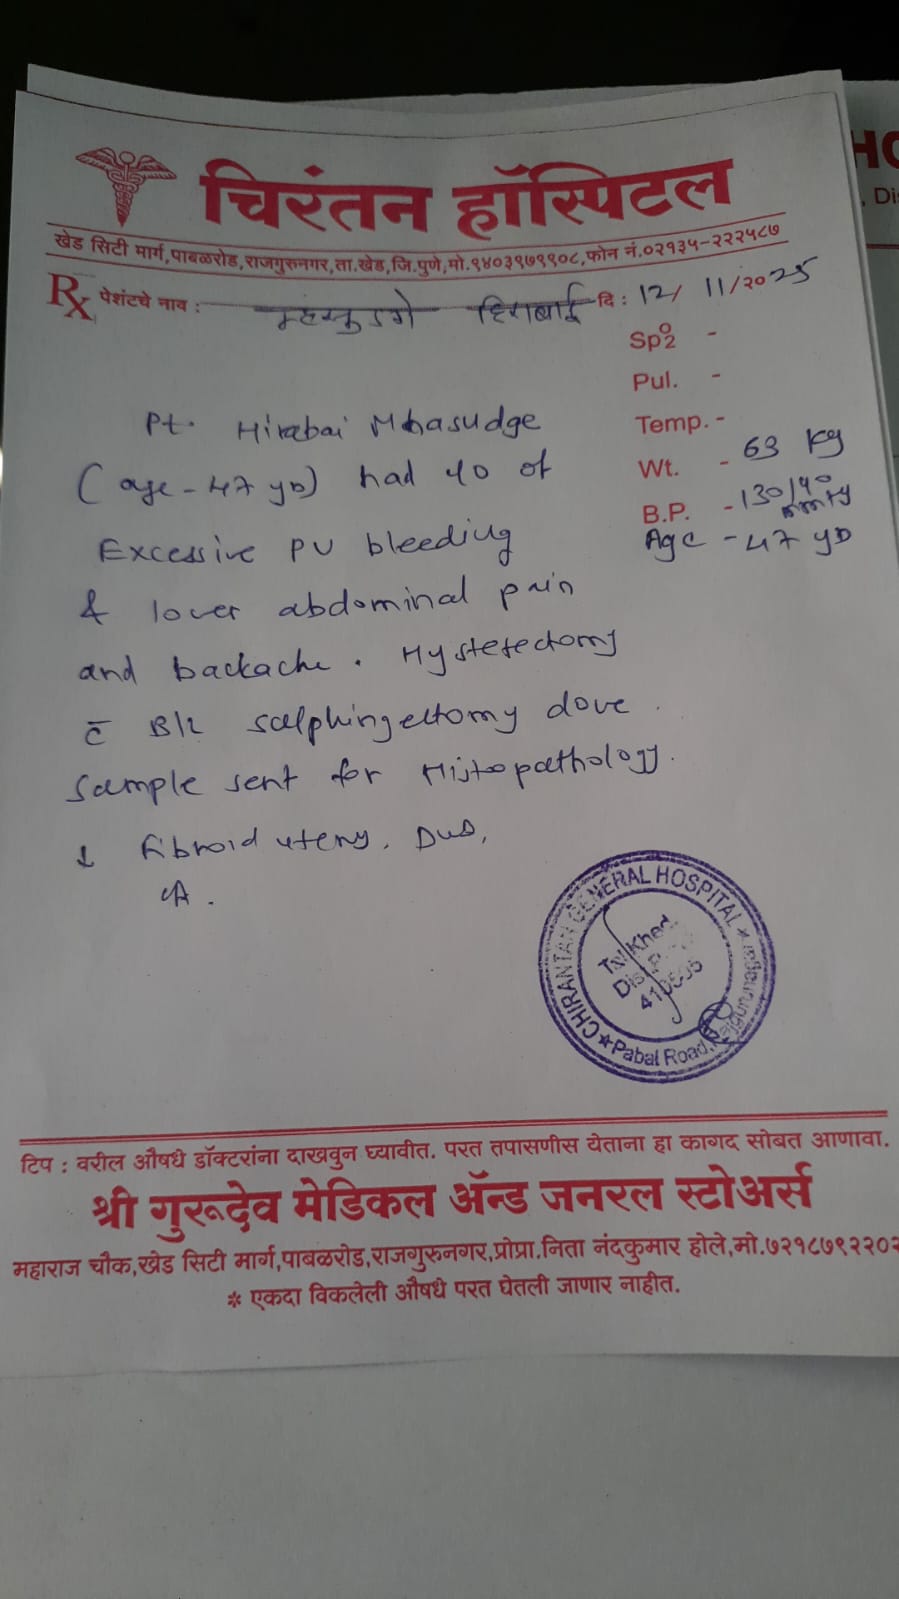 चिरंतन हॉस्पिटल
खेड सिटी मार्ग,पाबळरोड,राजगुरुनगर,ता.खेड,जि.पुणे,मो.९४०३९७९९०८,फोन नं.०२१३५-२२२५८७
Rx पेशंटचे नाव : म्हसुडगे हिराबाई दि : 12/ 11/२०25
Sp o2 -
Pul. -
Temp. -
Wt. - 63 kg
B.P. - 130/90 mmHg
Age - 47 yD
Pt. Hirabai Mhasudge
(age - 47 yD) had 40 of
Excessive PV bleeding
& lover abdominal pain
and backache. Hysterectomy
c̄ B/L salphingectomy done.
Sample sent for Histopathology.
↓ fibroid uterus. DUB,
CHIRANTAN GENERAL HOSPITAL
Tal Khed
Dist.
Pabal Road, Rajgurunagar
टिप : वरील औषधे डॉक्टरांना दाखवुन घ्यावीत. परत तपासणीस येताना हा कागद सोबत आणावा.
श्री गुरूदेव मेडिकल ॲन्ड जनरल स्टोअर्स
महाराज चौक,खेड सिटी मार्ग,पाबळरोड,राजगुरुनगर,प्रोप्रा.निता नंदकुमार होले,मो.७२१८७९२२०२
* एकदा विकलेली औषधे परत घेतली जाणार नाहीत.